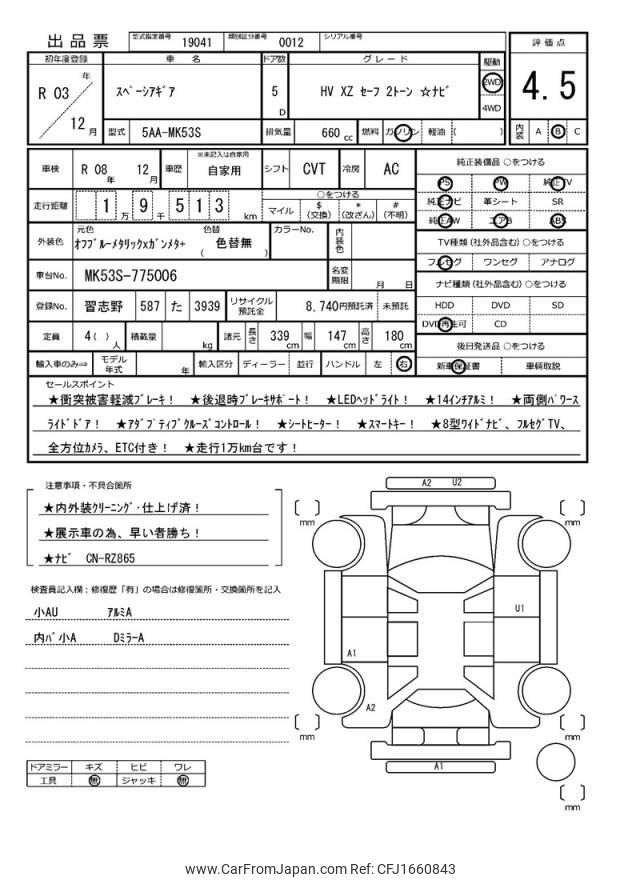 出品票 型式指定番号 19041 類別区分番号 0012 シリアル番号
初年度登録 車名 ドア数 グレード 駆動 評価点
R 03 年 12 月 スペーシアギア 5 D HV XZ セーフ 2トーン ☆ナビ 2WD 4WD 4.5
型式 5AA-MK53S 排気量 660 cc 燃料 ガソリン 軽油 ( ) 内装 A B C
車検 R 08 年 12 月 車歴 ※未記入は自家用 自家用 シフト CVT 冷房 AC 純正装備品 ○をつける
PS PW 純正TV
走行距離 1 万 9 千 5 1 3 km ○をつける 純正ナビ 革シート SR
マイル $ (交換) * (改ざん) # (不明) 純正AW エアB ABS
外装色 元色 オフブルーメタリックxガンメタ+ 色替 ( 色替無 ) カラーNo. 内装色 TV種類 (社外品含む) ○をつける
フルセグ ワンセグ アナログ
車台No. MK53S-775006 名変期限 月 日 ナビ種類 (社外品含む) ○をつける
登録No. 習志野 587 た 3939 リサイクル預託金 8,740円預託済 未預託 HDD DVD SD
DVD再生可 CD
定員 4 ( ) 人 積載量 kg 諸元 長さ 339 cm 幅 147 cm 高さ 180 cm 後日発送品 ○をつける
輸入車のみ⇒ モデル年式 年 輸入区分 ディーラー 並行 ハンドル 左 右 新車保証書 車輌取説
セールスポイント
★衝突被害軽減ブレーキ! ★後退時ブレーキサポート! ★LEDヘッドライト! ★14インチアルミ! ★両側パワース
ライドドア! ★アダプティブクルーズコントロール! ★シートヒーター! ★スマートキー! ★8型ワイドナビ、フルセグTV、
全方位カメラ、ETC付き! ★走行1万km台です!
注意事項・不具合箇所
★内外装クリーニング・仕上げ済!
★展示車の為、早い者勝ち!
★ナビ CN-RZ865
検査員記入欄:修復歴「有」の場合は修復箇所・交換箇所を記入
小AU アルミA
内バ小A DミラーA
ドアミラー キズ ヒビ ワレ
工具 無 ジャッキ 無
A2 U2
mm mm
U1
A1
A2
mm mm
A1
mm
www.CarFromJapan.com Ref: CFJ1660843